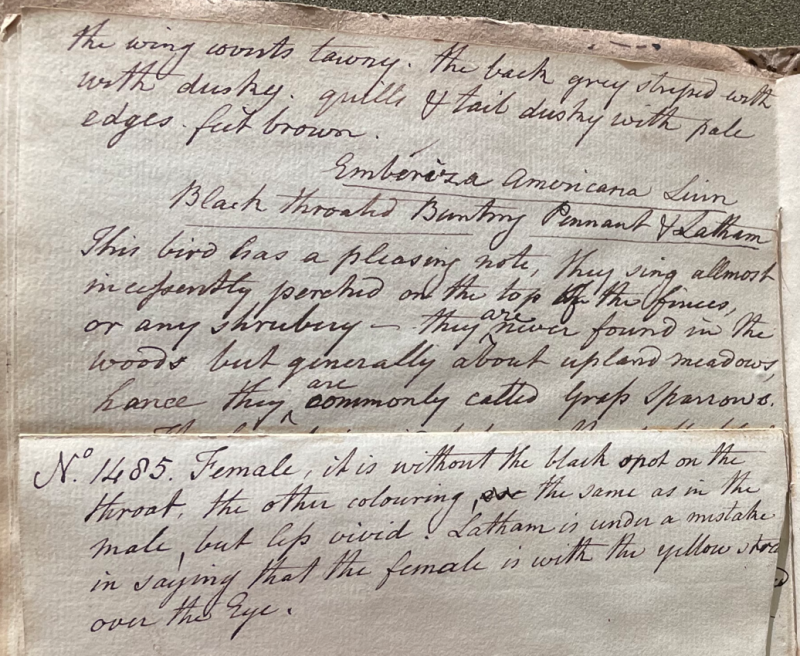 the wing coverts tawny. the back grey striped with
with dusky. quills & tail dusky with pale
edges. feet brown.
Emberiza Americana Linn
Black throated Buntng Pennant & Latham
This bird has a pleasing note, they sing allmost
incessently perched on the top of the finces,
or any shrubery — they are never found in the
woods but generally about upland meadows,
hance they are commonly called Grass Sparrows.
No. 1485. Female, it is without the black spot on the
throat, the other colouring, the same as in the
male, but less vivid. Latham is under a mistake
in saying that the female is with the yellow
over the Eye.